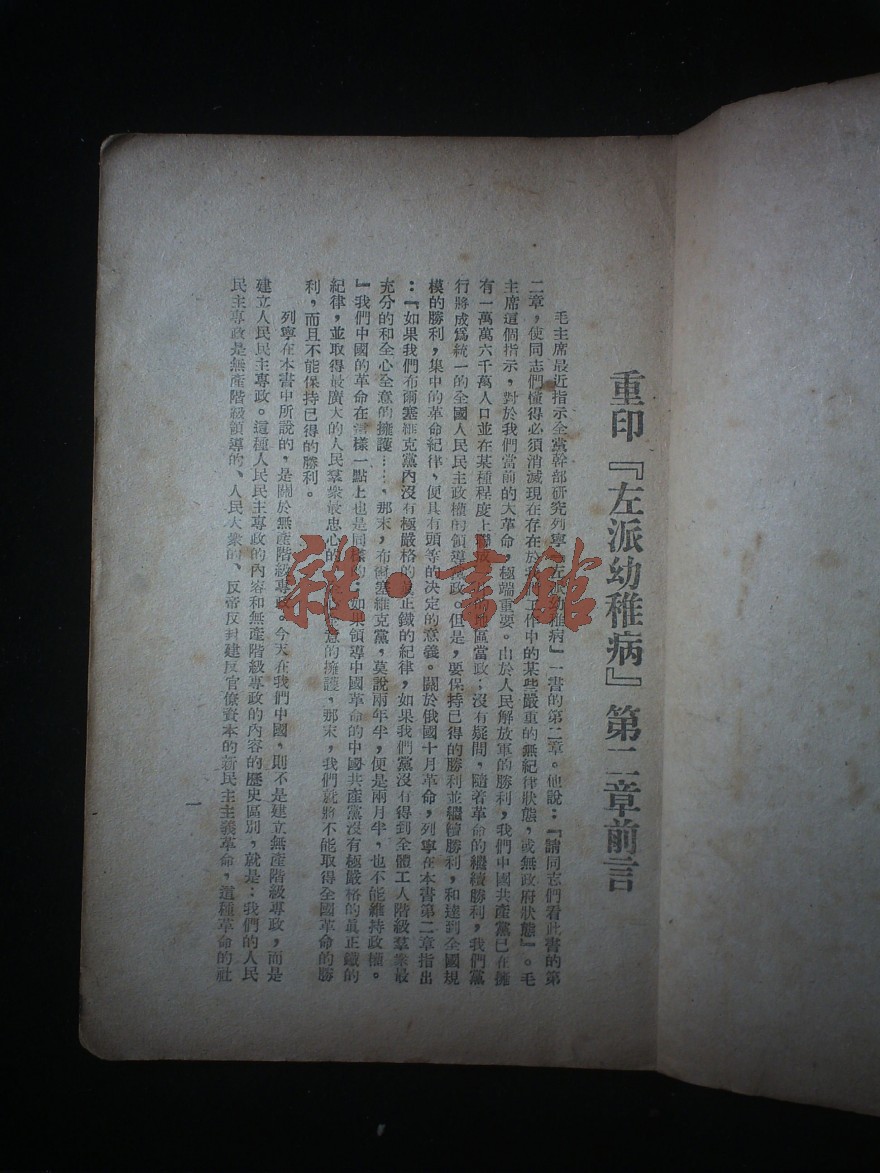 重印『左派幼稚病』第二章前言
毛主席最近指示全黨幹部研究列寧『左派幼稚病』一書的第二章。他說：『請同志們看此書的第
二章，使同志們懂得必須消滅現在存在於我們工作中的某些嚴重的無紀律狀態，或無政府狀態』。毛
主席這個指示，對於我們當前的大革命，極端重要。由於人民解放軍的勝利，我們中國共產黨已在擁
有一萬萬六千萬人口並在某種程度上聯成一片的地區當政；沒有疑問，隨着革命的繼續勝利，我們黨
行將成爲統一的全國人民民主政權的領導執政。但是，要保持已得的勝利並繼續勝利，和達到全國規
模的勝利，集中的革命紀律，便具有頭等的决定的意義。關於俄國十月革命，列寧在本書第二章指出
：『如果我們布爾塞維克黨內沒有極嚴格的眞正鐵的紀律，如果我們黨沒有得到全體工人階級羣衆最
充分的和全心全意的擁護……，那末，布爾塞維克黨，莫說兩年半，便是兩月半，也不能維持政權。
』我們中國的革命在這樣一點上也是同樣的：如果領導中國革命的中國共產黨沒有極嚴格的眞正鐵的
紀律，並取得最廣大的人民羣衆最忠心的 意的擁護，那末，我們就將不能取得全國革命的勝
利，而且不能保持已得的勝利。
列寧在本書中所說的，是關於無產階級專政。今天在我們中國，則不是建立無產階級專政，而是
建立人民民主專政。這種人民民主專政的內容和無產階級專政的內容的歷史區別，就是：我們的人民
民主專政是無產階級領導的、人民大衆的、反帝反封建反官僚資本的新民主主義革命，這種革命的社
一
雜·書館